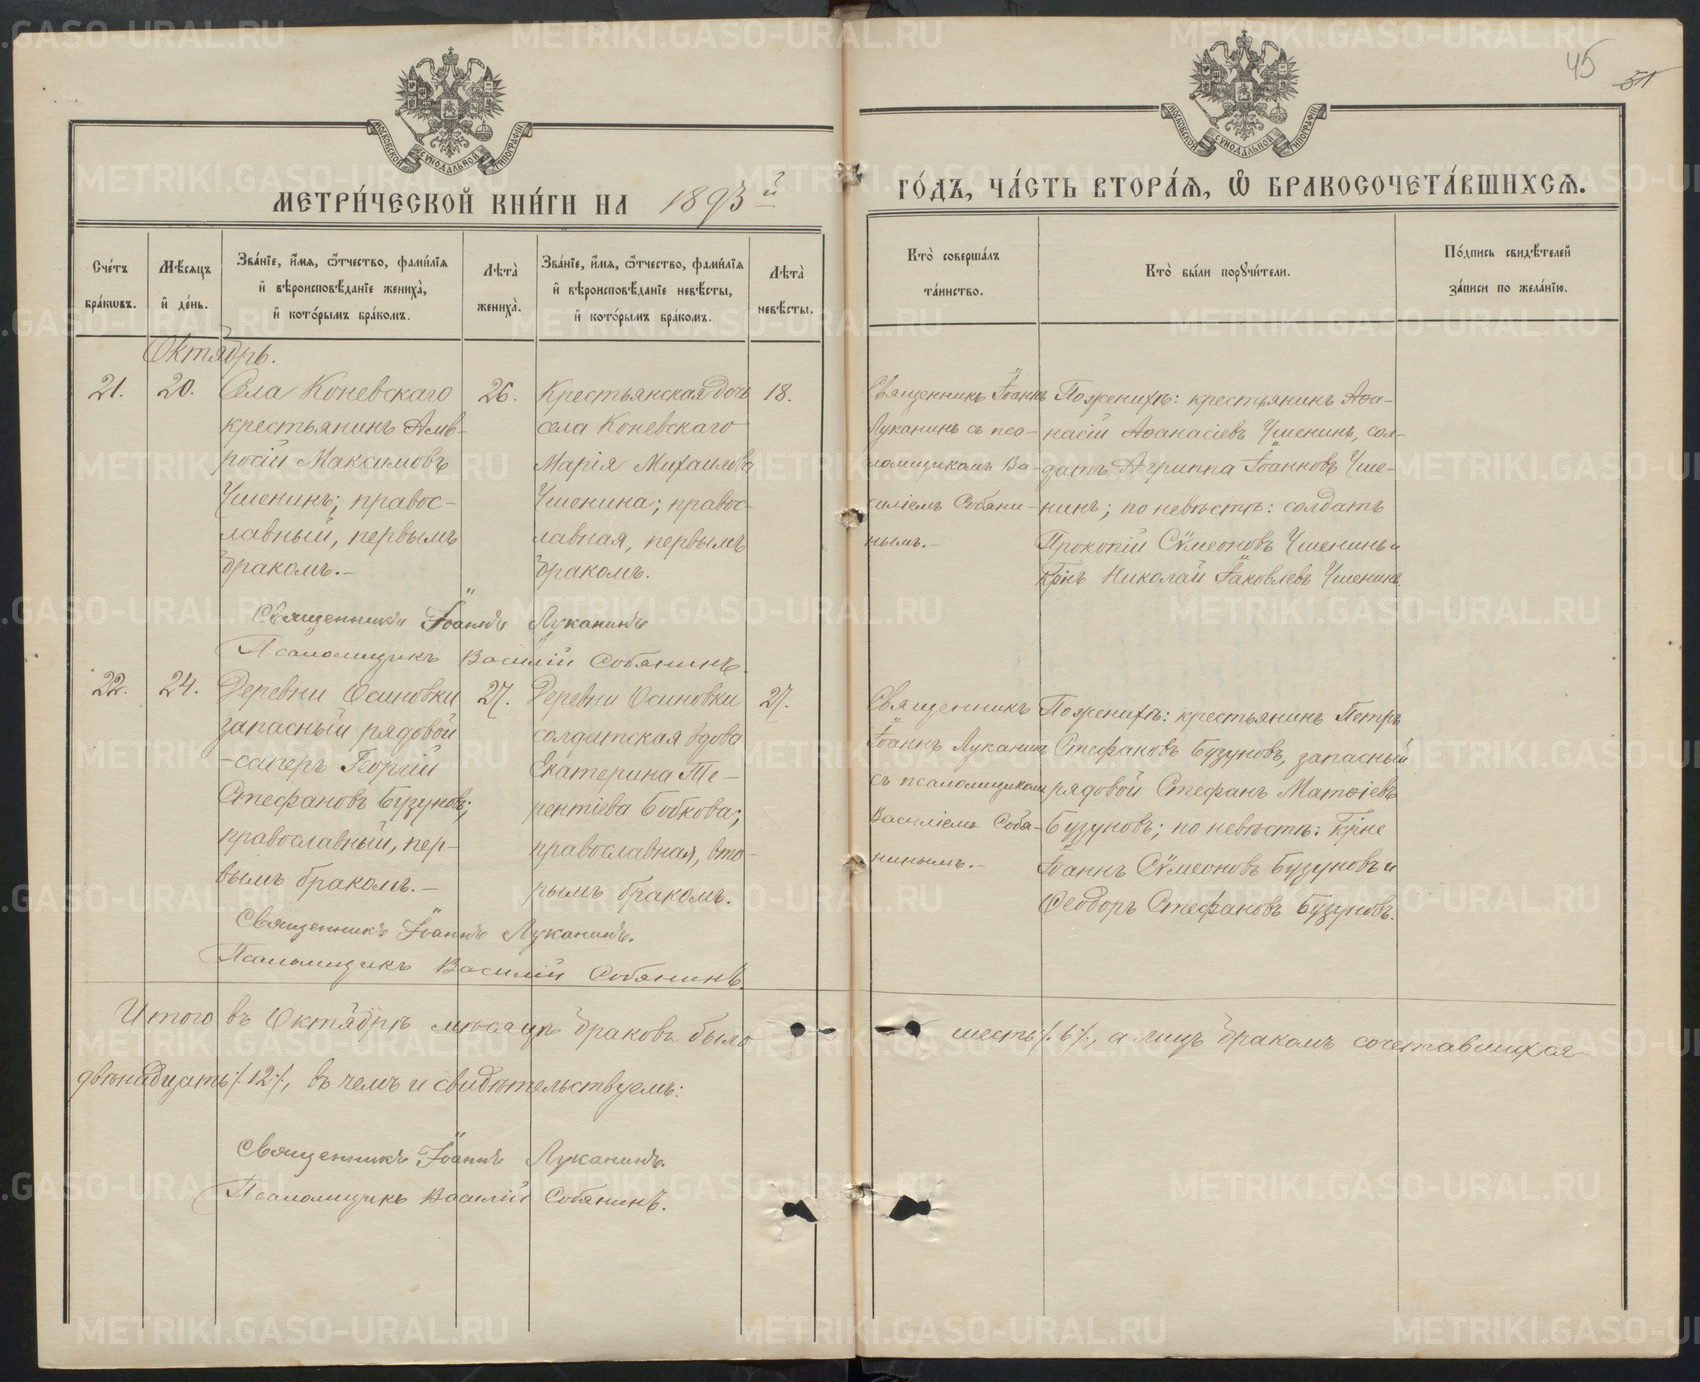 45
51
МОСКОВСКОЙ СѴНОДАЛЬНОЙ ТИПОГРАФІИ
МОСКОВСКОЙ СѴНОДАЛЬНОЙ ТИПОГРАФІИ
МЕТРИ́ЧЕСКОЙ КНИ́ГИ НА 1893й
ГО́ДЪ, ЧА́СТЬ ВТОРА́Ѧ, Ѽ БРАКОСОЧЕТА́ВШИХСѦ.
Сче́тъ
бра́кѡвъ.
Мѣ́сѧцъ
и҆ де́нь.
Зва́нїе, и҆́мѧ, ѻ҆́тчество, фами́лїѧ
и҆ вѣроисповѣ́данїе жениха̀,
и҆ кото́рымъ бра́комъ.
Лѣта̀
жениха̀.
Зва́нїе, и҆́мѧ, ѻ҆́тчество, фами́лїѧ
и҆ вѣроисповѣ́данїе невѣ́сты,
и҆ кото́рымъ бра́комъ.
Лѣта̀
невѣ́сты.
Кто̀ соверша́лъ
та́инство.
Кто̀ бы́ли порꙋчи́тели.
По́дпись свидѣ́телей
за́писи по жела́нїю.
Октябрь.
21.
20.
Села Коневскаго
крестьянинъ Амв-
росій Максимовъ
Чшенинъ; правос-
лавный, первымъ
бракомъ.-
26.
Крестьянская дочь
села Коневскаго
Марія Михаилова
Чшенина; правос-
лавная, первымъ
бракомъ.
18.
Священникъ Іоаннъ
Луканинъ съ пса-
ломщикомъ Ва-
силіемъ Собяни-
нымъ.-
По женихѣ: крестьянинъ Аѳа-
насій Аѳанасіевъ Чшенинъ, сол-
датъ Агриппа Іоанновъ Чше-
нинъ; по невѣстѣ: солдатъ
Прокопій Сѵмеоновъ Чшенинъ и
Крнъ Николай Іаковлевъ Чшенинъ
Священникъ Іоаннъ Луканинъ
Псаломщикъ Василій Собянинъ.
22.
24.
Деревни Осиновки
запасный рядовой
-саперъ Георгій
Стефановъ Бузуновъ;
православный, пер-
вымъ бракомъ.-
27.
Деревни Осиновки
солдатская вдова
Екатерина Те-
рентіева Бобкова;
православная, вто-
рымъ бракомъ.
27.
Священникъ
Іоаннъ Луканинъ
съ псаломщикомъ
Василіемъ Собя-
нинымъ.-
По женихѣ: крестьянинъ Петръ
Стефановъ Бузуновъ, запасный
рядовой Стефанъ Матѳіевъ
Бузуновъ; по невѣстѣ: Крне
Іоаннъ Сѵмеоновъ Бузуновъ и
Ѳеодоръ Стефановъ Бузуновъ.
Священникъ Іоаннъ Луканинъ.
Псаломщикъ Василій Собянинъ.
Итого въ Октябрѣ мѣсяцѣ браковъ было шесть ⁒ 6 ⁒, а лицъ бракомъ сочетавшихся
двѣнадцать ⁒ 12 ⁒, въ чемъ и свидѣтельствуемъ:
Священникъ Іоаннъ Луканинъ.
Псаломщикъ Василій Собянинъ.
METRIKI.GASO-URAL.RU